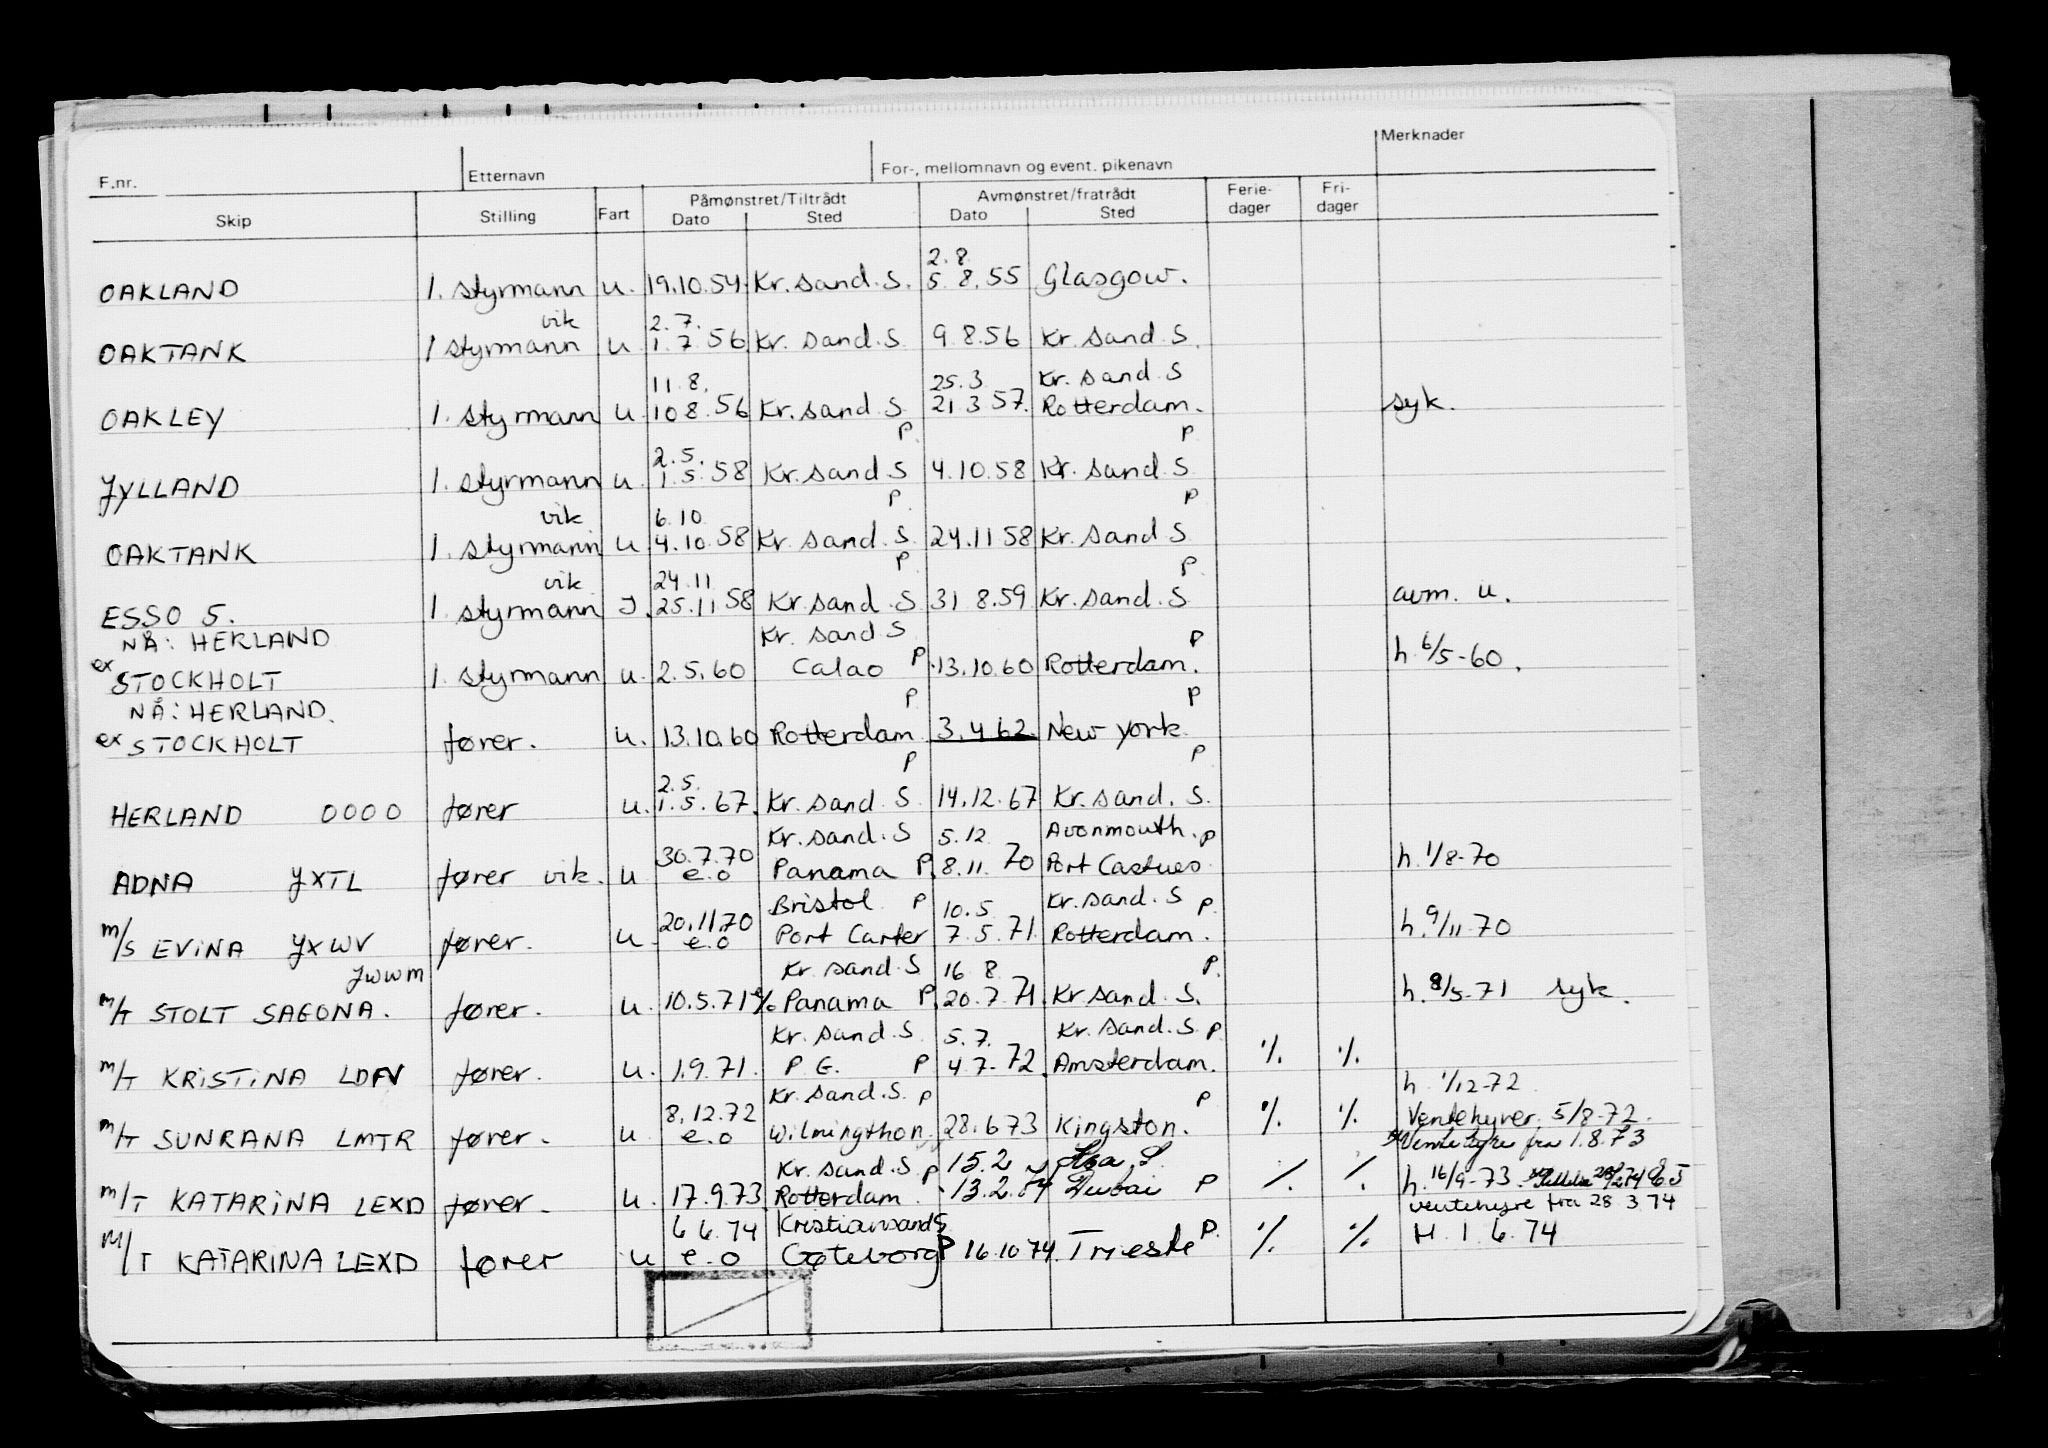 F.nr. Etternavn For-, mellomnavn og event. pikenavn Merknader
Skip Stilling Fart Påmønstret/Tiltrådt Dato Sted Avmønstret/fratrådt Dato Sted Ferie-dager Fri-dager
2.8.
OAKLAND 1. styrmann u. 19.10.54. Kr. sand. S. 5.8.55 Glasgow.
vik 2.7.
OAKTANK 1 styrmann u 1.7 56 Kr. sand. S 9.8.56 Kr. sand S.
11.8. 25.3 Kr. sand S
OAKLEY 1. styrmann u. 10 8. 56 Kr. sand S 21.3 57. Rotterdam. syk.
2.5. P. P
JYLLAND 1. styrmann u. 1.5.58 Kr. sand S 4.10.58 Kr. sand S
vik 6.10 P P
OAKTANK 1. styrmann u 4.10.58 Kr. sand. S 24.11 58 Kr. sand S
vik 24.11 P P
ESSO 5. 1. styrmann J. 25.11 58 Kr. sand. S 31 8.59 Kr. sand. S avm. u.
NÅ: HERLAND Kr. sand S P
ex STOCKHOLT 1. styrmann u. 2.5.60 Calao P 13.10.60 Rotterdam. h. 6/5-60.
NÅ: HERLAND. P P
ex STOCKHOLT fører. u. 13.10.60 Rotterdam 3.4 62 New York
2.5. P P
HERLAND 0000 fører u. 1.5.67. Kr. sand. S 14.12.67 Kr. sand. S.
30.7.70 Kr. sand. S 5.12 Avonmouth. P
ADNA JXTL fører vik. u e.o Panama P. 8.11. 70 Port h. 1/8-70
20.11.70 Bristol P 10.5 Kr. sand. S P.
m/s EVINA JXWV fører. u e.o Port Carter 7.5.71. Rotterdam. h. 9/11-70
JWWM Kr. sand. S 16 8 P.
m/T STOLT SAGONA. fører. u. 10.5.71 Panama P. 20.7.71. Kr sand. S. h. 8/5-71 syk.
Kr. sand. S 5.7. Kr. sand. S. P
m/T KRISTINA LDFV fører. u. 1.9.71. P G. P 4.7.72. Amsterdam. ·/. ·/.
8.12.72 Kr. sand. S. P P h. 1/12-72
m/T SUNRANA LMTR fører. u e.o Wilmingthon, 28.6 73 Kingston. ·/. ·/. Ventehyrer. 5/8-72.
Kr. sand. S. P 15.2 fra 1.8.73
m/T KATARINA LEXD fører. u. 17.9.73. Rotterdam. 13.2.74 Dubai P ·/. ·/. h. 16/9-73.
6 6.74 Kristiansand S P. ventehyre fra 28.3.74
M/T KATARINA LEXD fører u e.o Gøteborg P 16.10 74. Trieste ·/. ·/. H. 1.6.74